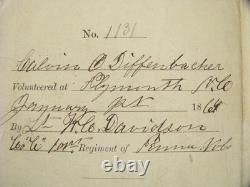 No. 1131
Calvin O Diffenbacher
Volunteered at Plymouth N.C
January 1st 1864
By Lt W.C. Davidson
Co "C" 101st Regiment of Penna Vols
© taaas.com